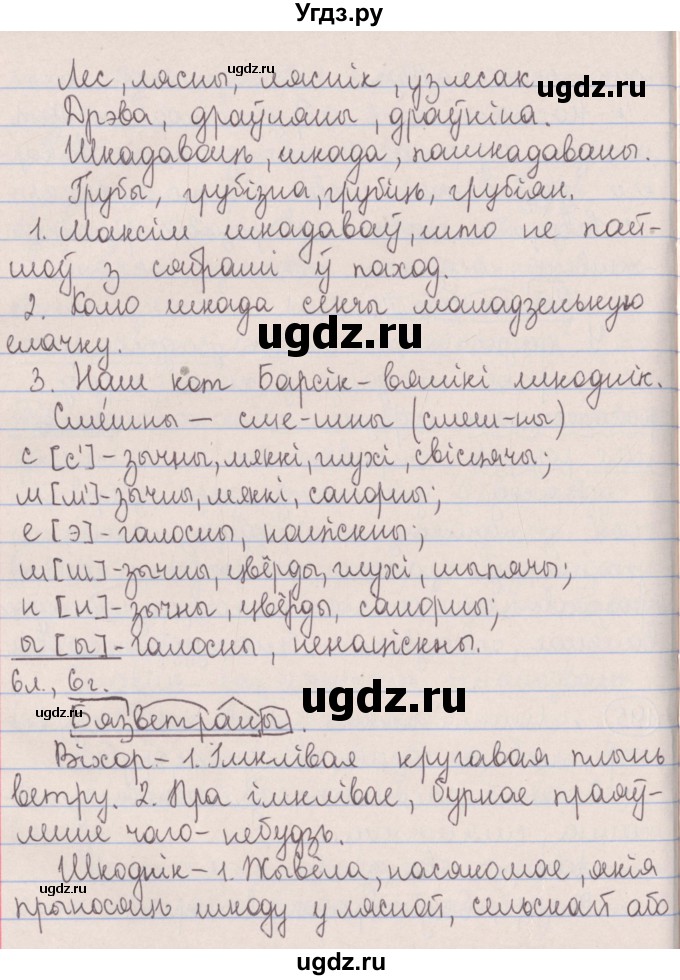 Угдз.ру
Лес, лясны, ляснік, узлесак
Дрэва, драўляны, драўніна.
Шкадаваць, шкада, пашкадаваны.
Грубы, грубізна, грубіць, грубіян.
1. Максім шкадаваў, што не пай-
шоў з сябрамі ў паход.
2. Камо шкада секчы маладзенькую
ёлачку.
3. Наш кот Барсік – вялікі шкоднік.
Сме́шны – сме-шны (смеш-ны)
с [с'] - зычны, мяккі, глухі, свісцячы;
м [м'] - зычны, мяккі, санорны;
е [э] - галосны, націскны;
ш [ш] - зычны, цвёрды, глухі, шыпячы;
н [н] - зычны, цвёрды, санорны;
ы [ы] - галосны, ненаціскны.
6л., 6г.
Бязветраны.
Віхор – 1. Імклівая кругавая плынь
ветру. 2. Пра імклівае, бурнае праяў-
ленне чаго-небудзь.
Шкоднік – 1. Жывёла, насякомае, якія
прыносяць шкоду ў лясной, сельскай або
www.ugdz.ru
ugdz.ru
www.ugdz.ru
ugdz.ru
ugdz.ru
www.ugdz.ru
ugdz.ru
www.ugdz.ru
ugdz.ru
www.ugdz.ru